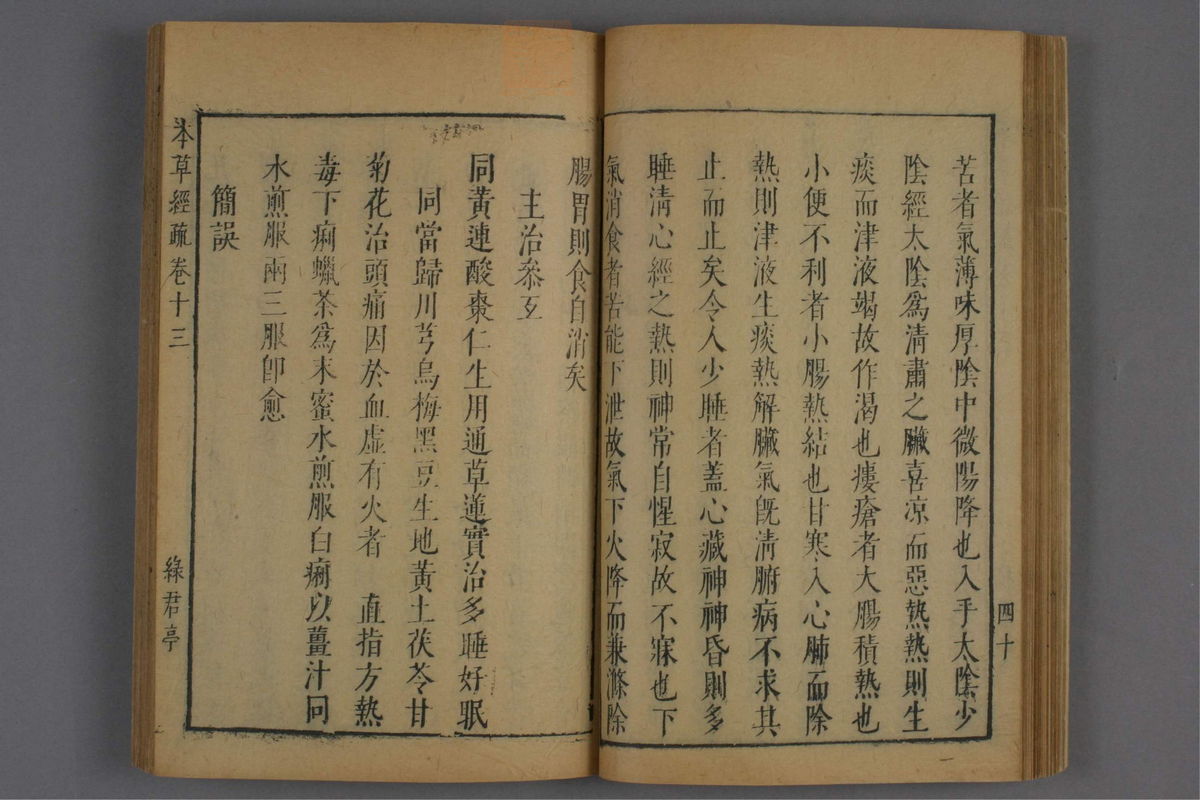 苦者氣薄味厚陰中微陽降也入手太陰少
陰經太陰爲清肅之臟喜凉而惡熱熱則生
痰而津液竭故作渴也瘻瘡者大腸積熱也
小便不利者小腸熱結也甘寒入心肺而除
熱則津液生痰熱解臟氣旣清腑病不求其
止而止矣令人少睡者蓋心藏神神昏則多
睡淸心經之熱則神常自惺寂故不寐也下
氣消食者苦能下泄故氣下火降而兼滌除
腸胃則食自消矣
主治叅互
同黃連酸棗仁生用通草蓮實治多睡好眠
同當歸川芎烏梅黑豆生地黃土茯苓甘
菊花治頭痛因於血虛有火者 直指方熱
毒下痢蠟茶爲末蜜水煎服白痢以薑汁同
水煎服兩三服卽愈
簡誤
本草經疏卷十三
綠君亭
四十